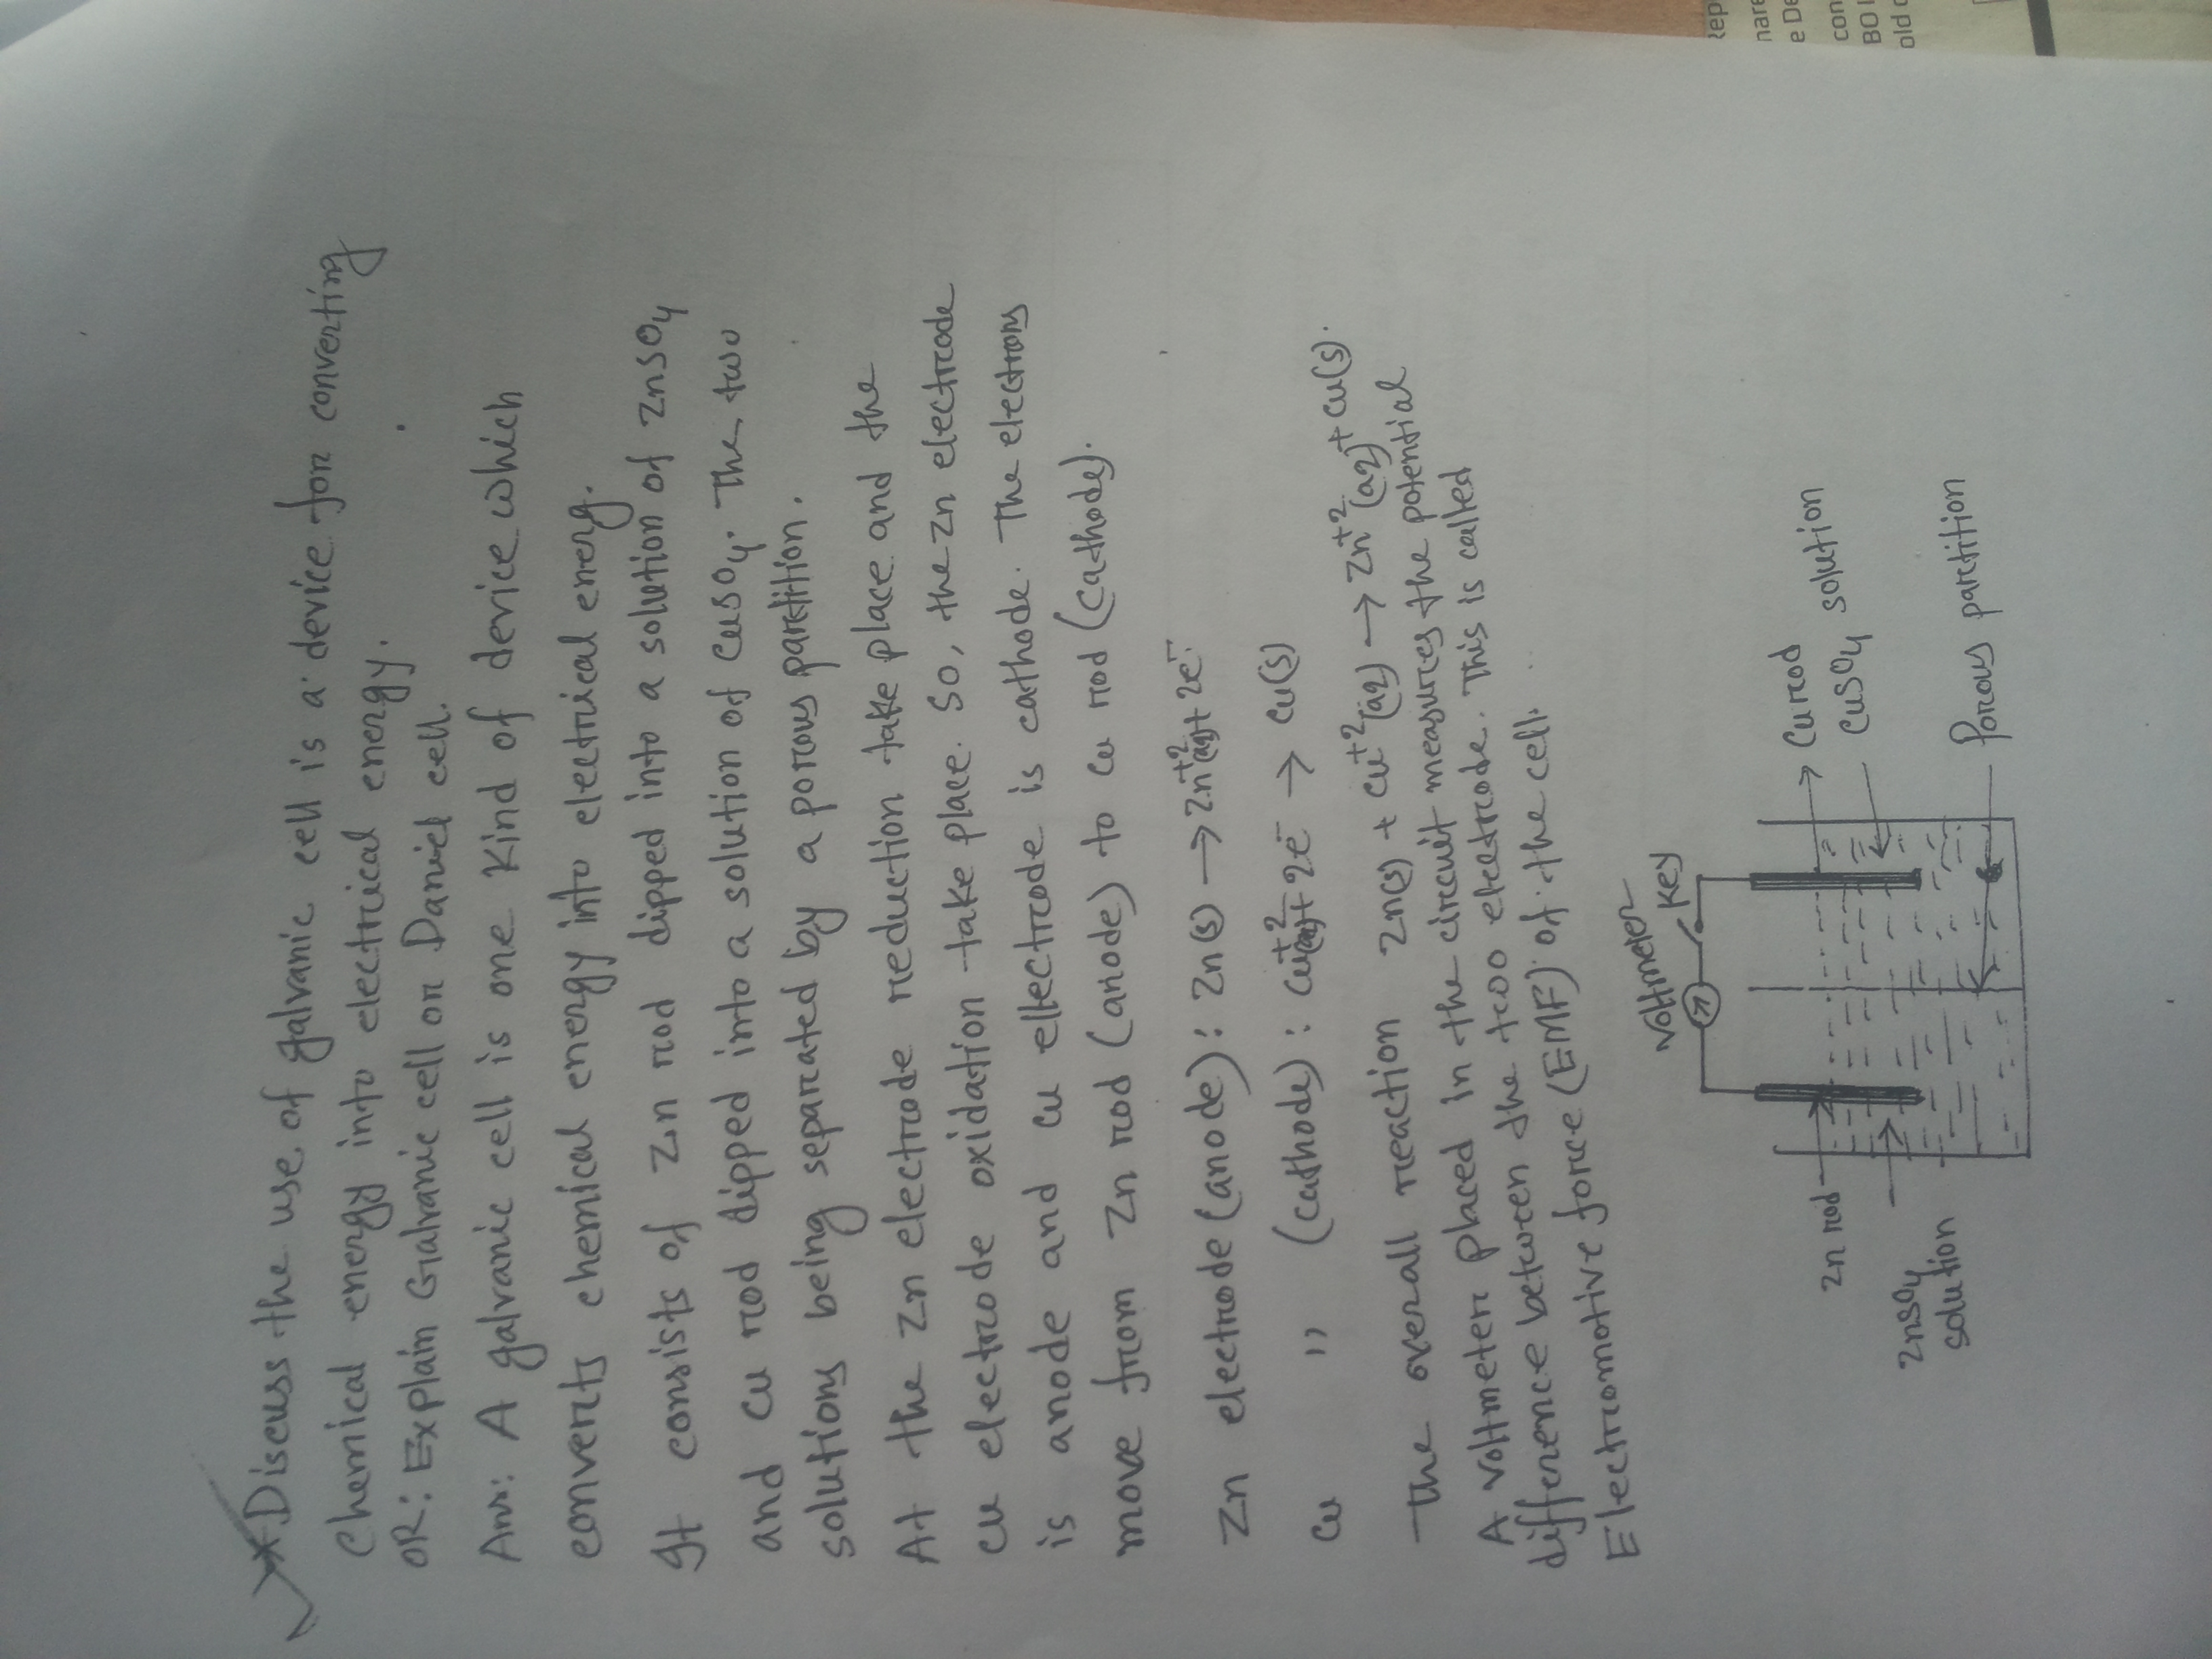 *Discuss the use of galvanic cell is a device for converting
chemical energy into electrical energy.
OR: Explain Galvanic cell or Daniel cell.
Ans: A galvanic cell is one kind of device which
converts chemical energy into electrical energ.
It consists of Zn rod dipped into a solution of ZnSO4
and Cu rod dipped into a solution of CuSO4. The two
solutions being separated by a porous partition.
At the Zn electrode reduction take place and the
Cu electrode oxidation take place. So, the Zn electrode
is anode and Cu ellectrode is cathode. The electrons
move from Zn rod (anode) to Cu rod (cathode).
Zn electrode (anode): Zn(s) → Zn+2(aq) + 2e-
Cu " (cathode): Cu+2(aq) + 2e- → Cu(s)
The overall reaction Zn(s) + Cu+2(aq) → Zn+2(aq) + Cu(s).
A voltmeter placed in the circuit measures the potential
difference between the two electrode. This is called
Electromotive force (EMF) of the cell.
Voltmeter
Key
Zn rod
ZnSO4
solution
Cu rod
CuSO4 solution
Porous partition
Rep
nare
e De
con
BO I
old c